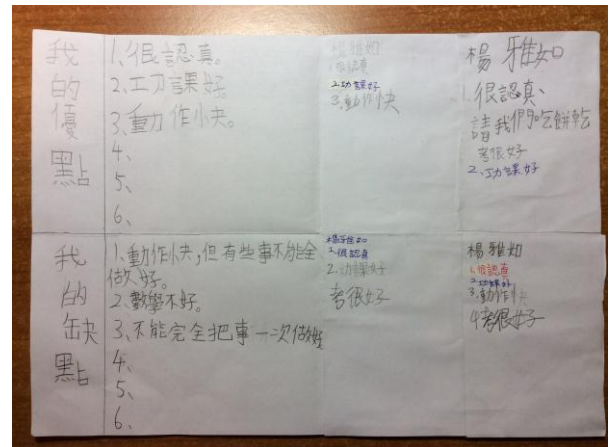 我的優點
1、很認真。
2、功課好。
3、動作小夬。
4、
5、
6、
楊雅如
1.很認真
2.功課好
3.動作快
楊雅如
1.很認真、
請我們吃餅乾
考很好
2、功課好
我的缺點
1、動作小夬,但有些事不能全
做好。
2、數學不好。
3、不能完全把事一次做好
4、
5、
6、
楊雅如
1、很認真
2、功課好
考很好
楊雅如
1、很認真
2、功課好
3、動作快
4考很好